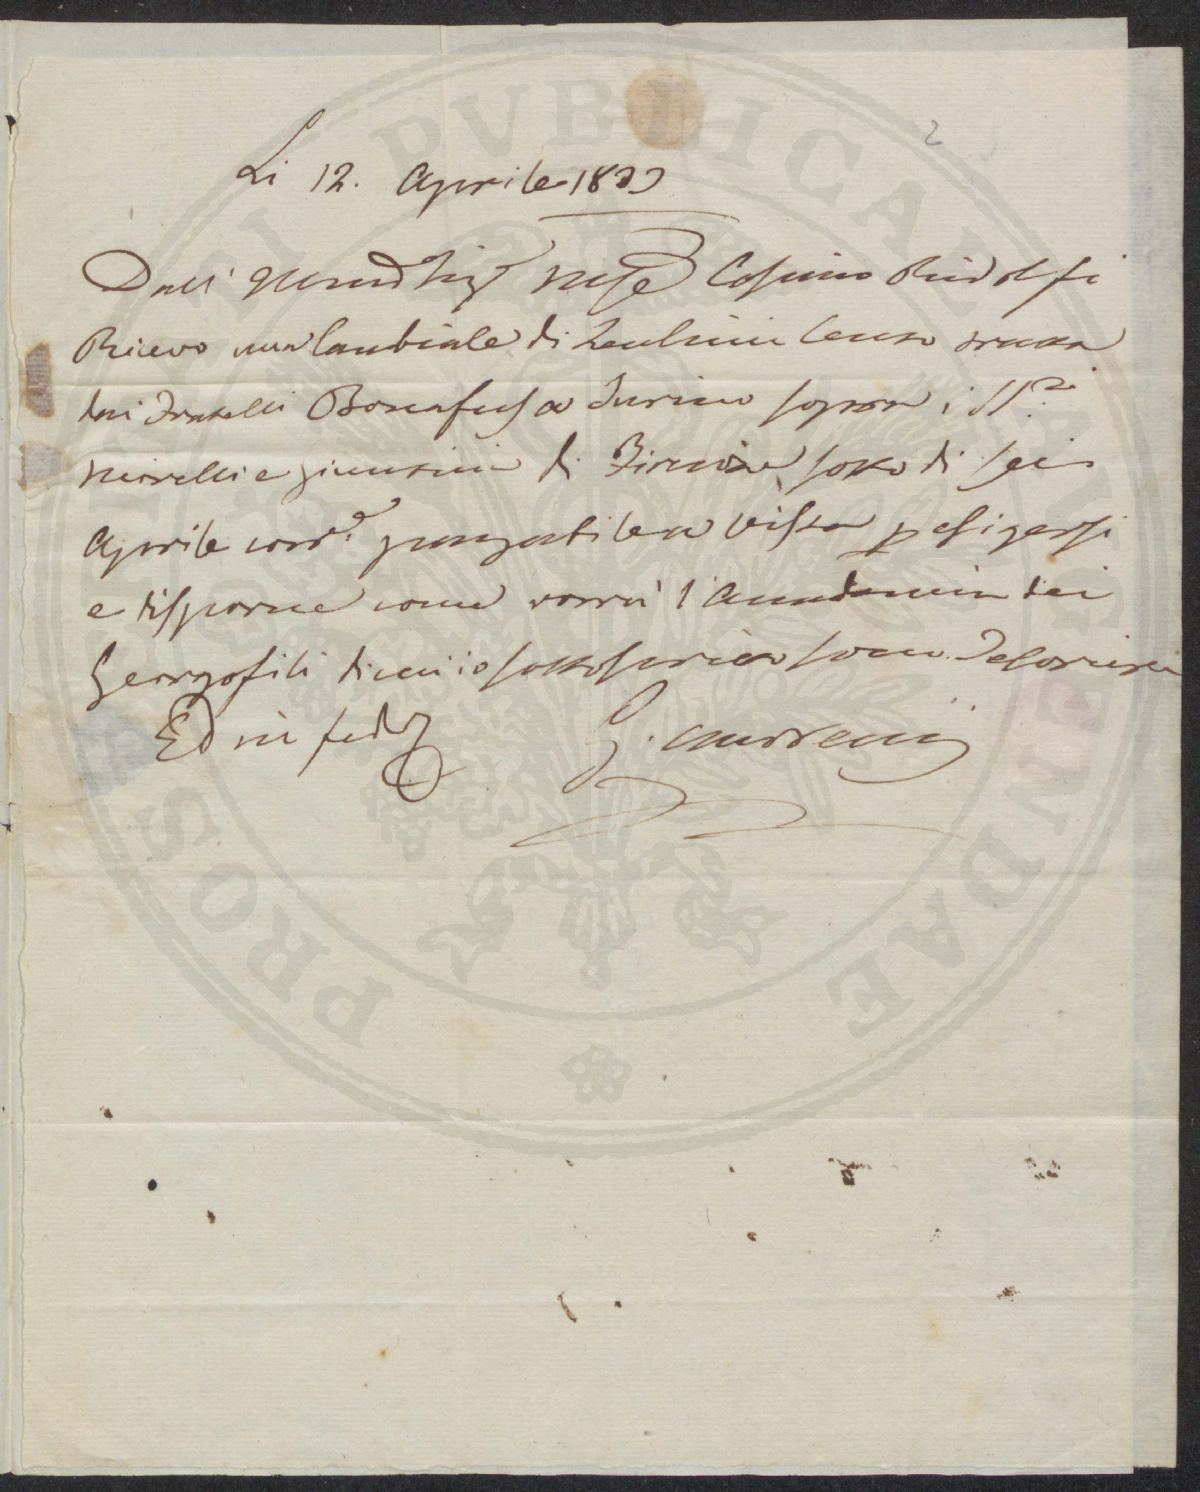 2
Li 12. Aprile 1833
Dall' Sige Mse Cosimo Ridolfi
Ricevo una Cambiale di Zecchini Cento tratta
dai Fratelli Bonafus a Turino sopra i SSri
Morelli e Giuntini di Firenze sotto di sei
Aprile corre pagabile a vista p esigersi
e disporne come vorrà l'Accademia dei
Georgofili di cui io sottoscritto sono Tesoriere
Ed in fede G.
PROSPERITATI PVBLICAE AVGENDAE